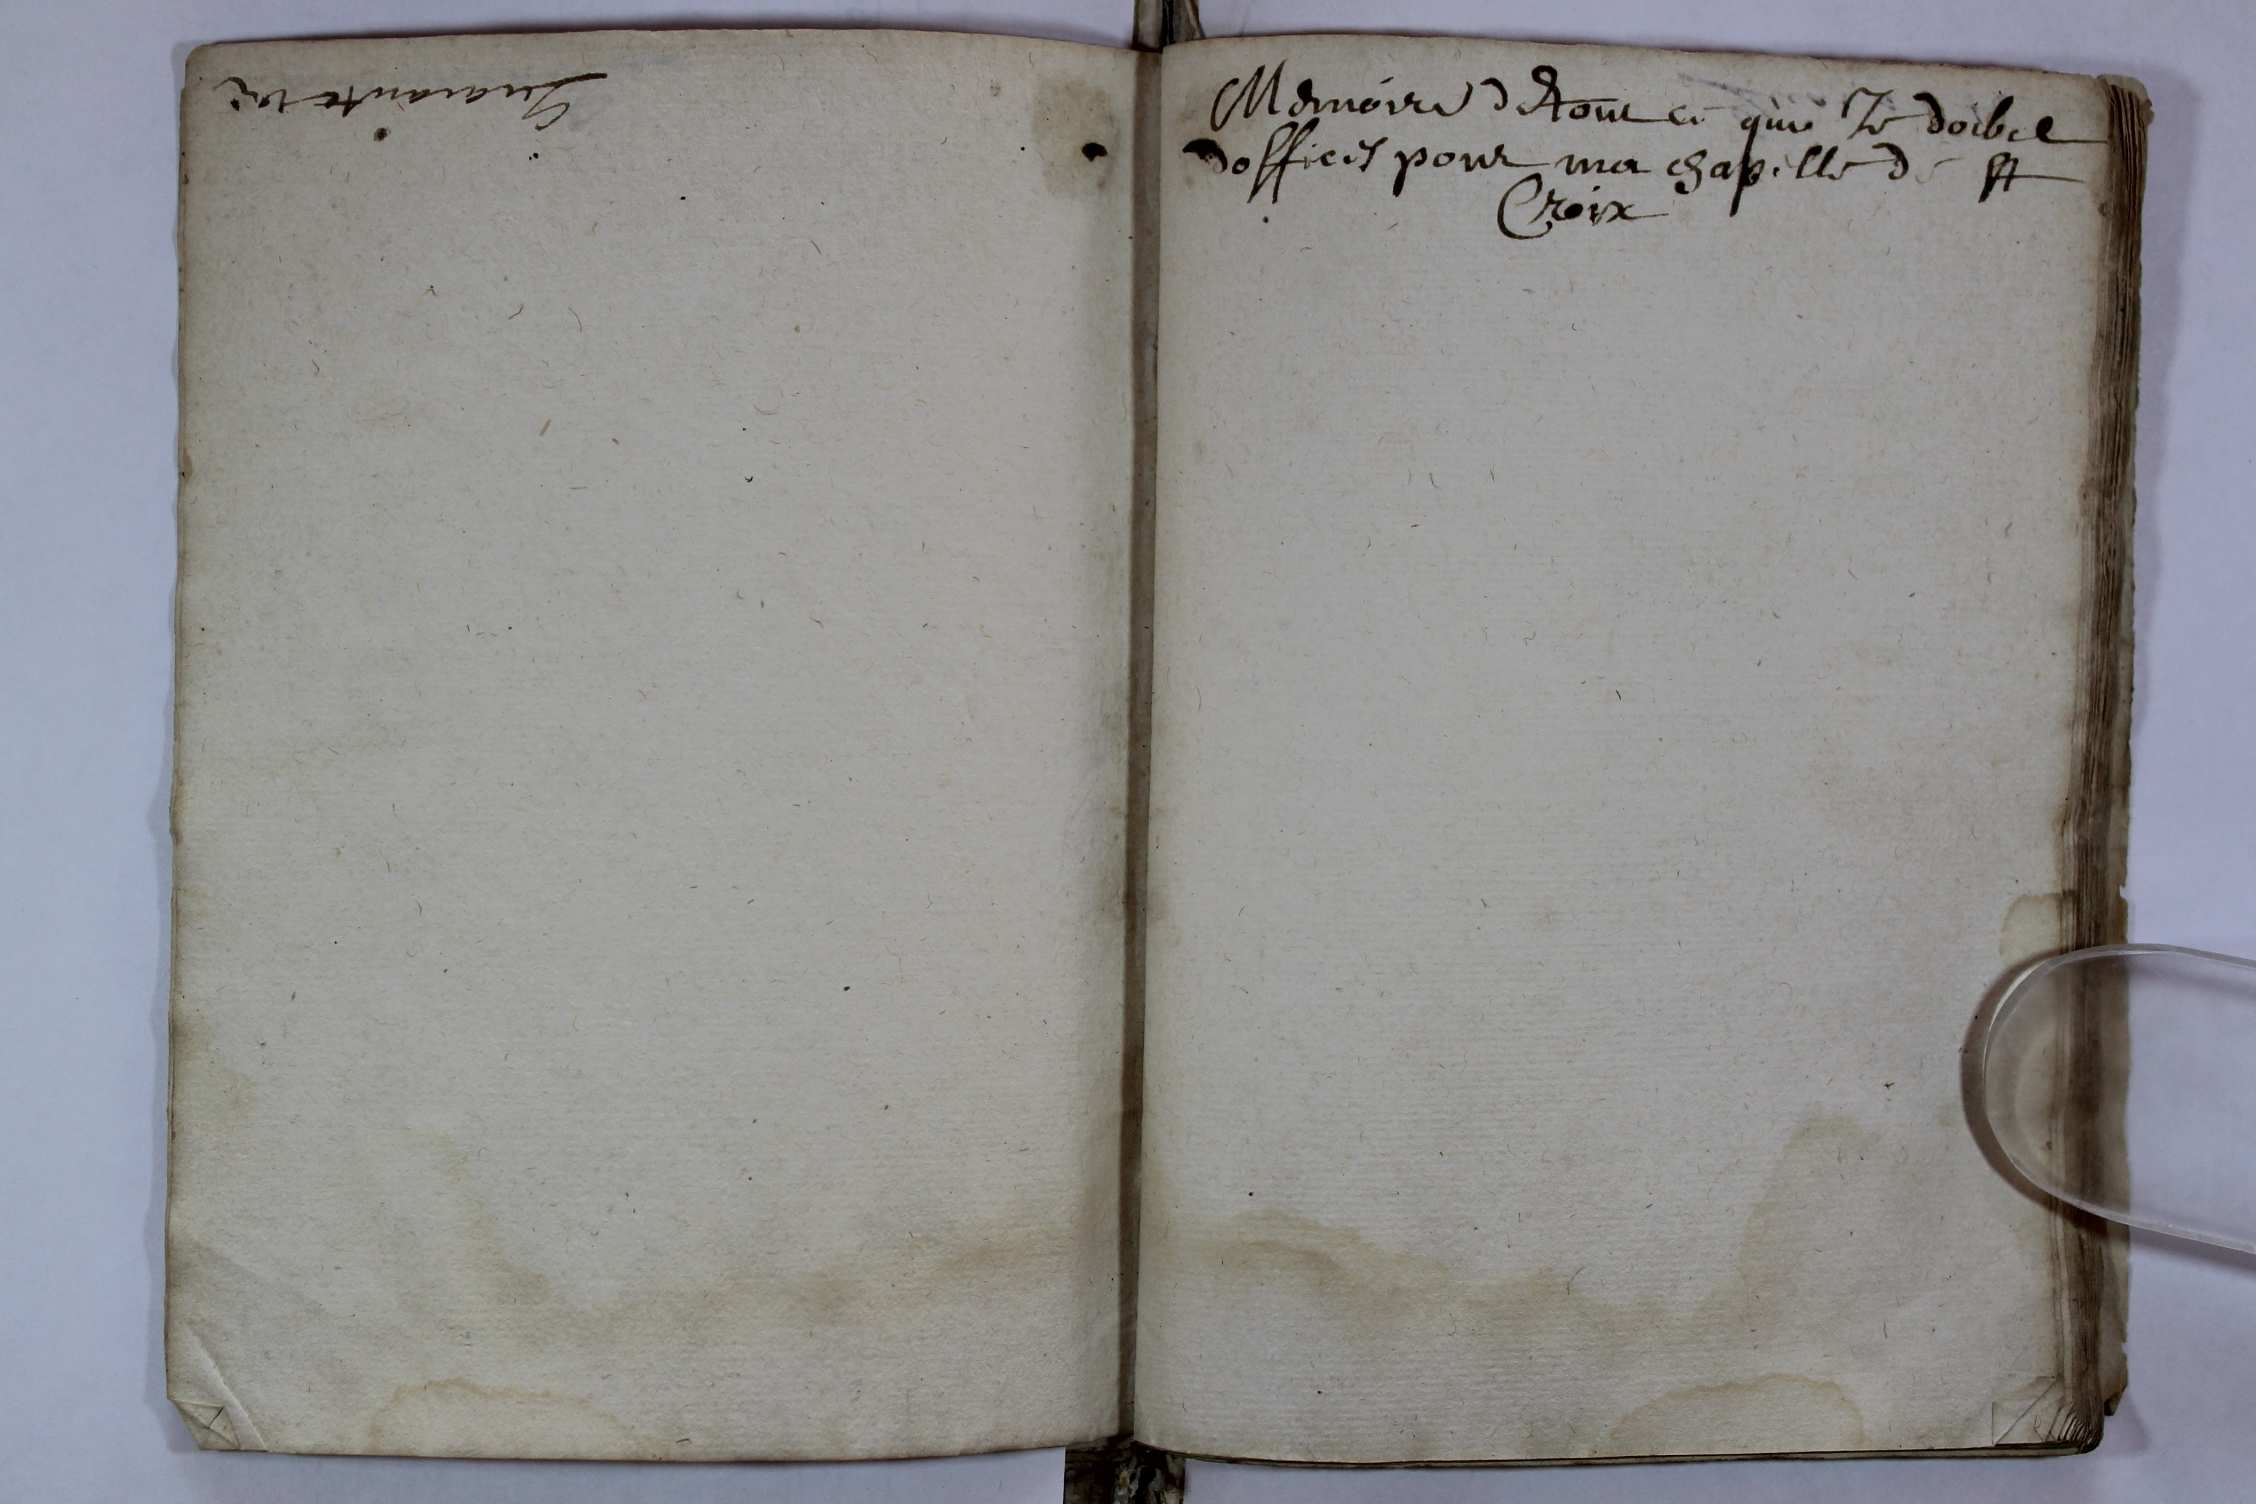 Quarante six
Memoire de tout ce que Je doibve
doffices pour ma chapelle de ste
Croix